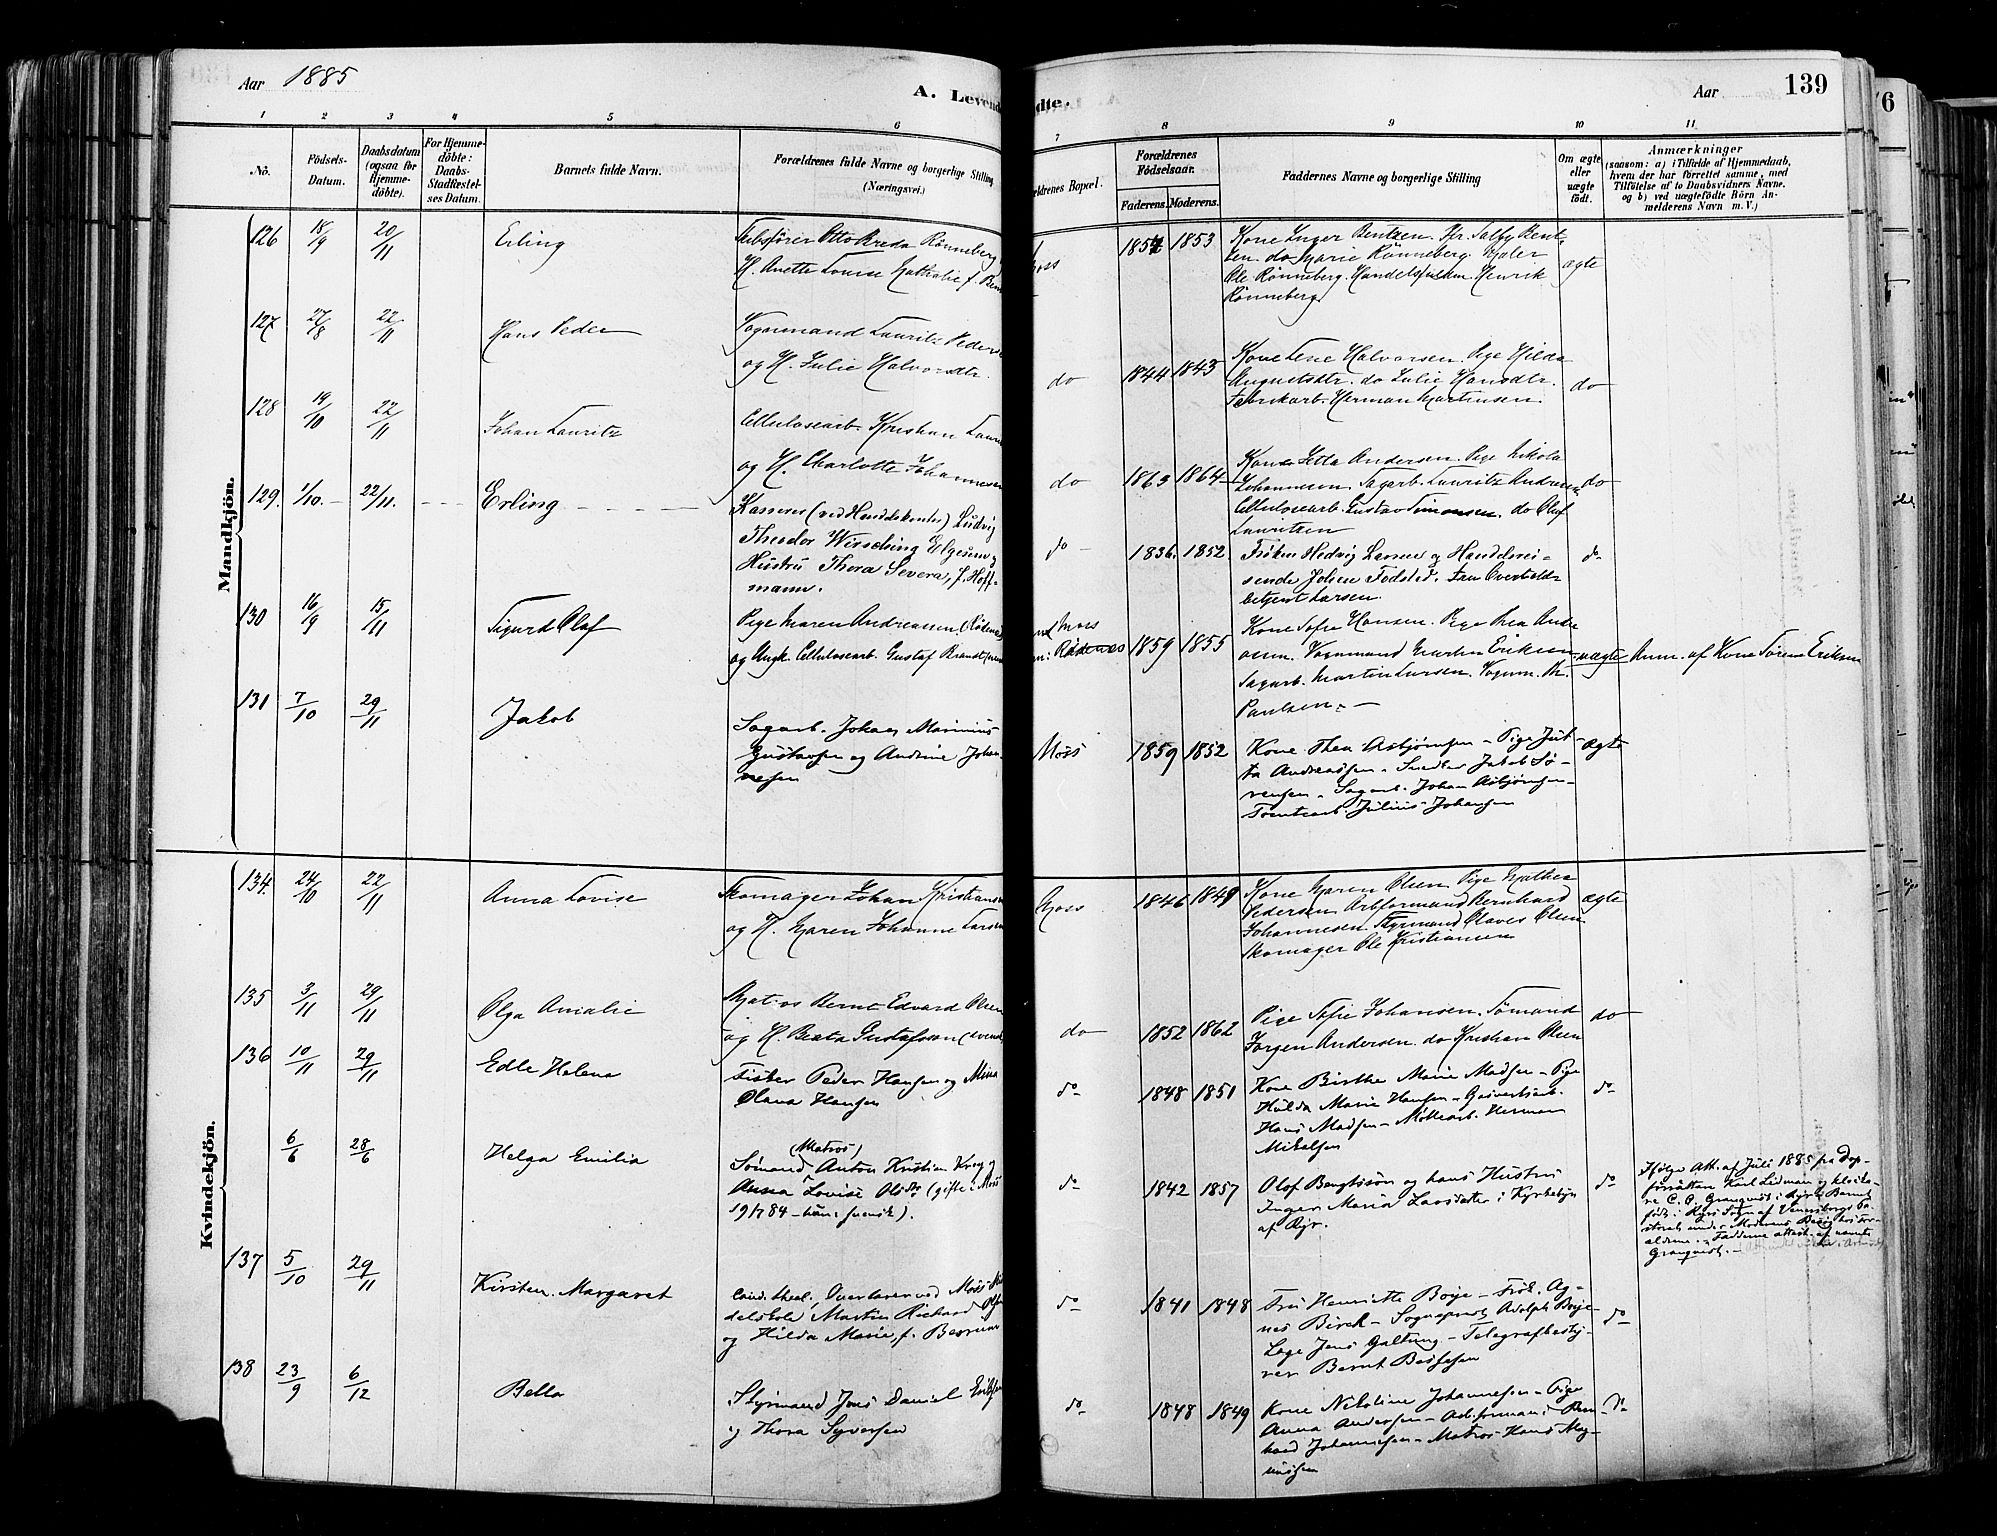 Aar 1885
A. Levende
dte.
Aar
139
1 2 3 4 5 6 7 8 9 10 11
No.
Födsels-Datum.
Daabsdatum (ogsaa for Hjemme-döbte).
For Hjemme-döbte: Daabs-Stadfæstel-ses Datum.
Barnets fulde Navn.
Forældrenes fulde Navne og borgerlige Stilling
(Næringsvei.)
ldrenes Bopæl.
Forældrenes Födselsaar.
Faderens. Moderens.
Faddernes Navne og borgerlige Stilling
Om ægte eller uægte födt.
Anmærkninger
(saasom: a) i Tilfælde af Hjemmedaab,
hvem der har forrettet samme, med
Tilföielse af to Daabsvidners Navne.
og b) ved uægtefödte Börn An-
melderens Navn m. V.)
Mandkjön.
126 18/9 20/11 Erling
Skibsfører Otto Breda Rønneberg
H. Anette Louise Nathalie f.
Moss 1857 1853
Kone Inger Bentzen. Fr. Salby Bent-
zen. do Marie Rønneberg.
Ole Rønneberg. Handelsfuldm. Henrik
Rønneberg
ægte
127 27/8 22/11 Hans Peder
Vognmand Lauritz Peders
og H. Julie Halvorsdtr.
do 1844 1843
Kone Lene Halvorsen. Pige Hilda
Augustsdtr. do Julie Hansdtr.
Fabrikarb. Herman Martinsen.
do
128 14/10 22/11 Johan Lauritz
Cellulosearb. Kristian Laur
og H. Charlotte Johannesen
do 1863 1864
Kone Jetta Andersen. Pige Nikola
Johannesen. Sagarb. Lauritz Andresen
Cellulosearb. Gustav Simonsen. do Olaf
Lauritzen
do
129. 1/10 22/11. Erling
Kasserer (ved ) Ludvig
Theodor Wirsching Elgesem og
Hustru Thora Severa, f. Hoff-
mann.
do 1836. 1852
Frøken Hedvig Larsen og Handelsrei-
sende Johan Fodsted. Fru
betjent Larsen.
do
130 16/9 15/11 Sigurd Olaf
Pige Maren Andreassen (Rødenes)
og Ungk. Cellulosearb. Gustaf Brandt
Moss
Rødenes 1859 1855
Kone Sofie Hansen. Pige Thea Andre
asen. Vognmand Martin Eriksen
Sagarb. Martin Larsen. Vognm. Kr.
Paulsen.
uægte Anm. af Kone Sørine Eriksen
131 7/10 29/11 Jakob
Sagarb. Johan Marinius
Gustavsen og Andrine Johan-
nesen
Moss 1859 1852
Kone Thea Asbjørnsen - Pige Jut-
ta Andreassen - Snedker Jakob Sø-
rensen - Sagarb. Johan Asbjørnsen -
Tomtearb. Julius Johansen
ægte
Kvindekjön.
134. 24/10 22/11 Anna Lovise
Skomager Johan Kristiansen
og H. Maren Johanne Larsen
Moss 1846 1849
Kone Maren Olsen Pige Mathea
Pedersen Arbformand Bernhard
Johannesen Styrmand Olaves Olsen
Skomager Ole Kristiansen
ægte
135 3/11 29/11 Olga Amalie
Matros Bernt Edvard Olsen
og H. Beata Gustafsson (svensk
do 1852 1862
Pige Sofie Johansen. Sømand
Jørgen Andersen. do Kristian Olsen
do
136 10/11 29/11 Edle Helena
Fisker Peder Hansen og Mina
Olava Hansen
do 1848 1851
Kone Birthe Marie Madsen - Pige
Hulda Marie Hansen - Gasverksarb.
Hans Madsen - Møllearb. Herman
Mikelsen
do
6/6 28/6 Helga Emilia
(Matros)
Sømand Anton Kristian Krog og
Anna Lovise Olsdr (gifte i Moss
19/7 84 - han svensk).
do 1842 1857
Olof Bengtsson og hans Hustru
Inger Maria Larsdatter i Kyrkebyn
af Ryr.
do
Ifølge Att. af Juli 1885 fra
Karl Lidman og
C. O. Granqvist i Ryr
født i Ryrs Sogn af Venersborgs
under Moderens Besøg hos For-
ældrene. - Fadderne attest. af nævnte
Granqvist. -
137 5/10 29/11 Kirsten Margaret
Cand. theol., Overlærer ved Moss
delskole Martin Richard
og Hilda Marie, f.
do 1841 1848
Fru Henriette Boije - Frk. Ag-
nes Birch - Sogneprest Adolph Boije -
Læge Jens Galtung - Telegrafbesty-
rer Bernt Bessesen
do
138 23/9 6/12 Bella
Styrmand Jens Daniel Eriksen
og Thora Syversen
do 1848 1849
Kone Nikoline Johannesen - Pige
Anna Andersen - Arb.formand Bern-
hard Johannesen - Matros Hans Mag-
nussen
do